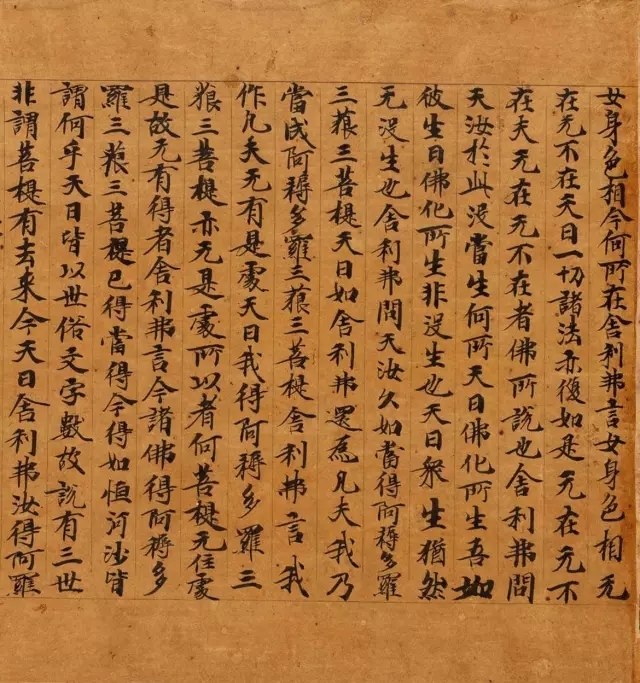 女身色相今何所在舍利弗言女身色相无
在无不在天曰一切諸法亦復如是无在无不
在夫无在无不在者佛所說也舍利弗問
天汝於此沒當生何所天曰佛化所生吾如
彼生曰佛化所生非沒生也天曰眾生猶然
无沒生也舍利弗問天汝久如當得阿耨多羅
三藐三菩提天曰如舍利弗還為凡夫我乃
當成阿耨多羅三藐三菩提舍利弗言我
作凡夫无有是處天曰我得阿耨多羅三
藐三菩提亦无是處所以者何菩提无住處
是故无有得者舍利弗言今諸佛得阿耨多
羅三藐三菩提已得當得今得如恒河沙皆
謂何乎天曰皆以世俗文字數故說有三世
非謂菩提有去來今天曰舍利弗汝得阿羅